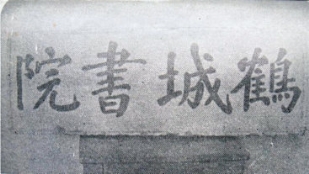 鶴城書院